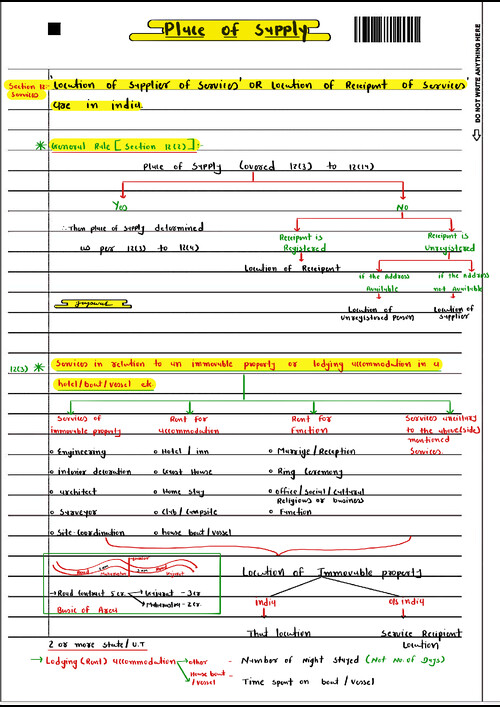 Place of Supply
DO NOT WRITE ANYTHING HERE
Section 12:-
Services
'Location of Supplier of Services' OR Location of Recipient of Services'
are in india.
* General Rule [Section 12(2)]:-
Place of Supply Covered 12(3) to 12(14)
Yes
No
∴ Then place of supply determined
as per 12(3) to 12(4)
Recipient is
Registered
Recipient is
Unregistered
Location of Recipient
if the Address
Available
if the Address
not Available
Location of
unregistered person
Location of
supplier
12(3) * Services in relation to an immovable property or lodging accommodation in a
hotel/boat/vessel etc
Services of
immovable property
Rent for
accommodation
Rent for
Function
Services ancillary
to the above(side)
mentioned
Services.
o Engineering
o interior decoration
o architect
o Surveyor
o Site Coordination
o Hotel / inn
o Guest House
o Home stay
o Club / Campsite
o house boat / vessel
o Marrige / Reception
o Ring Ceremony
o office / Social / Cultural
Religious or business
o Function
Road
Maharashtra
Road
Gujarat
→ Road Contract 5 cr.
Gujarat - 3cr
Maharashtra - 2cr.
Basic of Area
Location of Immovable property
India
o/s india
That location
Service Recipient
Location
2 or more state / U.T
→ Lodging (Rent) accommodation
other - Number of Night stayed (Not No. of Days)
House boat /
vessel - Time spent on boat / vessel